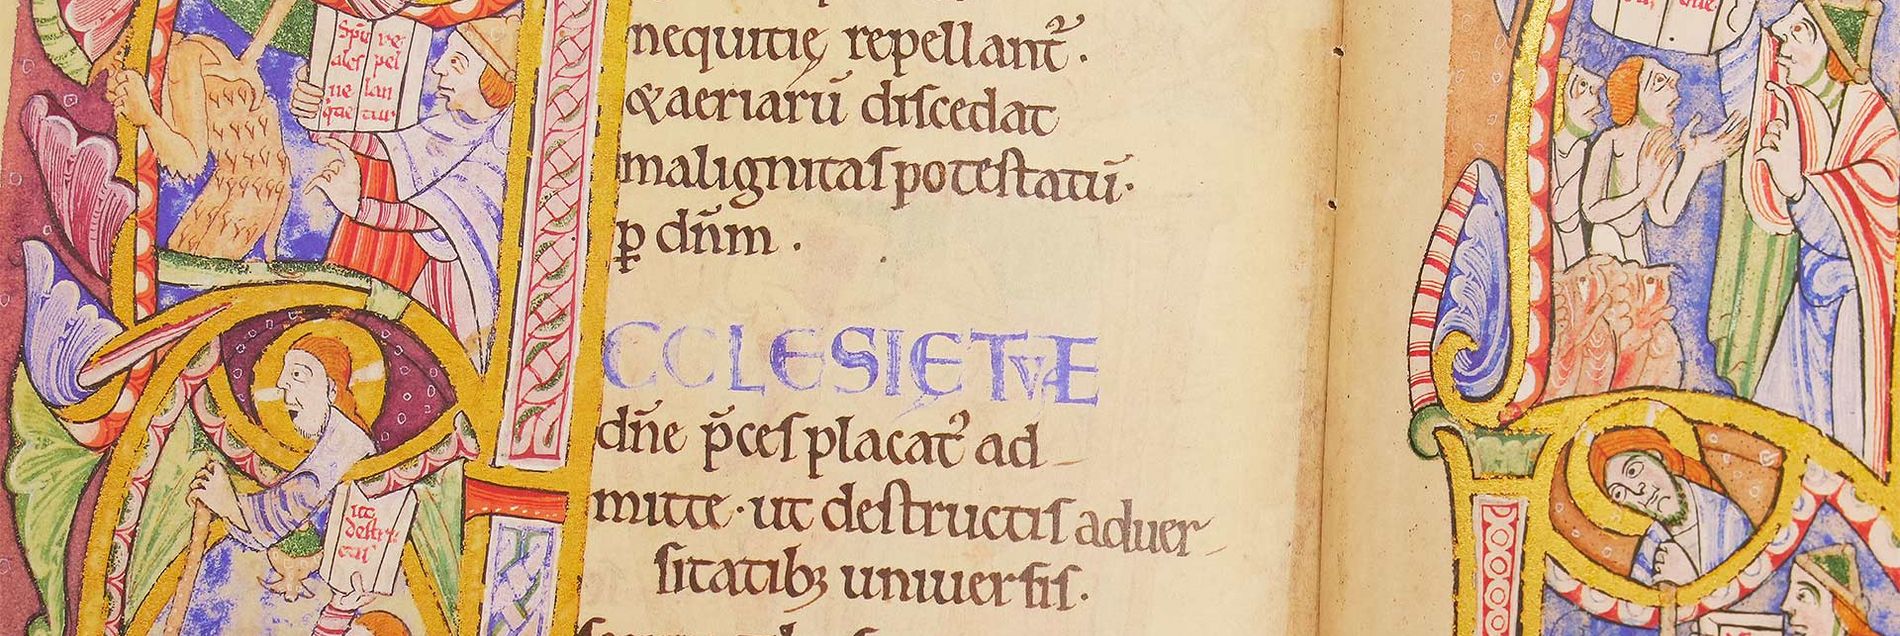 Spū re
ales pel
ne lan
q̄tie tur
nequitię repellant᷑.
&aeriarū discedat
malignitas potestatū.
ꝑ dn̄m .
CCLESIĘ TVÆ
dn̄e p̄ces placat᷑ ad
mitte · ut destructis aduer
sitatibꝫ uniuersis.
ut
destru